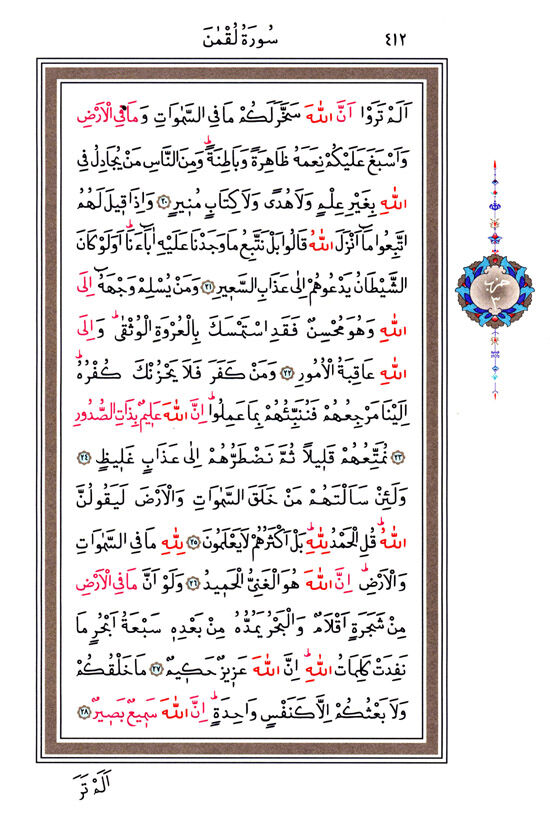 ٤١٢
سُورَةُ لُقْمٰنَ
اَلَمْ تَرَوْا اَنَّ اللّٰهَ سَخَّرَ لَكُمْ مَا فِي السَّمٰوَاتِ وَمَا فِي الْاَرْضِ
وَاَسْبَغَ عَلَيْكُمْ نِعَمَهُ ظَاهِرَةً وَبَاطِنَةًۜ وَمِنَ النَّاسِ مَنْ يُجَادِلُ فِي
اللّٰهِ بِغَيْرِ عِلْمٍ وَلَا هُدًى وَلَا كِتَابٍ مُنٖيرٍ ﴿٢٠﴾ وَاِذَا قٖيلَ لَهُمُ
اتَّبِعُوا مَٓا اَنْزَلَ اللّٰهُ قَالُوا بَلْ نَتَّبِعُ مَا وَجَدْنَا عَلَيْهِ اٰبَٓاءَنَاۜ اَوَلَوْ كَانَ
الشَّيْطَانُ يَدْعُوهُمْ اِلٰى عَذَابِ السَّعٖيرِ ﴿٢١﴾ وَمَنْ يُسْلِمْ وَجْهَهُٓ اِلَى
اللّٰهِ وَهُوَ مُحْسِنٌ فَقَدِ اسْتَمْسَكَ بِالْعُرْوَةِ الْوُثْقٰىۜ وَاِلَى
اللّٰهِ عَاقِبَةُ الْاُمُورِ ﴿٢٢﴾ وَمَنْ كَفَرَ فَلَا يَحْزُنْكَ كُفْرُهُۜ
اِلَيْنَا مَرْجِعُهُمْ فَنُنَبِّئُهُمْ بِمَا عَمِلُواۜ اِنَّ اللّٰهَ عَلٖيمٌ بِذَاتِ الصُّدُورِ
﴿٢٣﴾ نُمَتِّعُهُمْ قَلٖيلاً ثُمَّ نَضْطَرُّهُمْ اِلٰى عَذَابٍ غَلٖيظٍ ﴿٢٤﴾
وَلَئِنْ سَاَلْتَهُمْ مَنْ خَلَقَ السَّمٰوَاتِ وَالْاَرْضَ لَيَقُولُنَّ
اللّٰهُۜ قُلِ الْحَمْدُ لِلّٰهِۜ بَلْ اَكْثَرُهُمْ لَا يَعْلَمُونَ ﴿٢٥﴾ لِلّٰهِ مَا فِي السَّمٰوَاتِ
وَالْاَرْضِۜ اِنَّ اللّٰهَ هُوَ الْغَنِيُّ الْحَمٖيدُ ﴿٢٦﴾ وَلَوْ اَنَّ مَا فِي الْاَرْضِ
مِنْ شَجَرَةٍ اَقْلَامٌ وَالْبَحْرُ يَمُدُّهُ مِنْ بَعْدِهٖ سَبْعَةُ اَبْحُرٍ مَا
نَفِدَتْ كَلِمَاتُ اللّٰهِۜ اِنَّ اللّٰهَ عَزٖيزٌ حَكٖيمٌ ﴿٢٧﴾ مَا خَلْقُكُمْ
وَلَا بَعْثُكُمْ اِلَّا كَنَفْسٍ وَاحِدَةٍۜ اِنَّ اللّٰهَ سَمٖيعٌ بَصٖيرٌ ﴿٢٨﴾
اَلَمْ تَرَ
حزب
٣